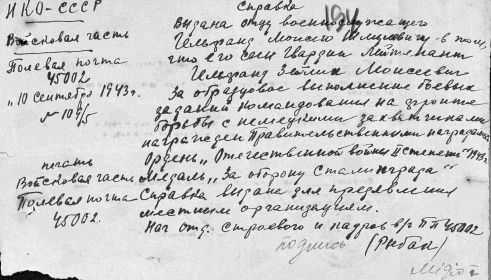 НКО-СССР
Войсковая часть
Полевая почта
45002
"10 сентября 1943г.
№ 109/5
печать
Войсковая часть
Полевая почта
45002.
Справка
Выдана отцу военнослужащего
Гельфанд Моисею в том,
что его сын Гвардии Лейтенант
Гельфанд Моисеевич
За образцовое выполнение боевых
заданий командования на фронте
борьбы с немецкими захватчиками
награжден Правительственными наградами
Орден "Отечественной войны II степени" 1943г
Медаль "За оборону Сталинграда"
Справка выдана для предявления
местным организациям.
Нач отд. строевого и кадров в/ч ПП 45002
подпись (Рыбак)